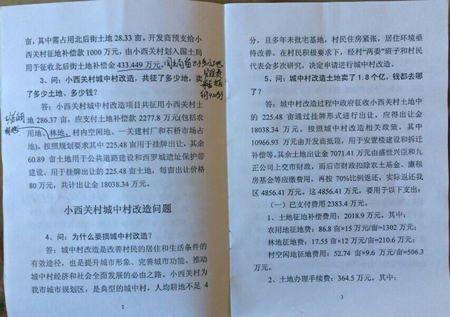 亩,其中需占用北后街土地 28.33 亩,开发商预支给小
西关村征地补偿款 1000 万元,由小西关村划入国土局
用于征收北后街土地补偿金 433.449 万元。
3、问:小西关村城中村改造,共征了多少地,卖
了多少土地、多少钱?
答:小西关村城中村改造项目共征用小西关村土
地 286.37 亩,应支付土地补偿款 2277.8 万元(包括农
用地、林地、村内空闲地、一关建材厂和石桥市场占
地),按照规划要求其中 225.48 亩用于挂牌出让,其余
60.89 亩土地用于公共道路建设和西罗城遗址保护带
建设,用于挂牌出让的 225.48 亩土地,每亩出让价格
80 万元,共计出让金 18038.34 万元。
小西关村城中村改造问题
4、问:为什么要搞城中村改造?
答:城中村改造是改善村民的居住和生活条件的
有效途径,也是提升城市形象、完善城市功能、推动
城中村经济和社会全面发展的必由之路,小西关村为
我市城市规划区,是典型的城中村,人均耕地不足 4
1
分,且多年未批宅基地,村民住房紧张,居住环境亟
待改善。在村民积极要求下,经村"两委"班子和村民
代表会多次研究,决定申请进行城中村改造。
5、问:城中村改造土地卖了 1.8 个亿,钱都去哪
了?
答:城中村改造过程中政府征收小西关土地其中
的 225.48 亩通过挂牌形式进行出让,应得出让金
18038.34 万元。按照城中村改造相关政策,其中
10966.93 万元由开发商抵顶,用于安置楼建设和拆迁
补偿等,其余土地出让金 7071.41 万元由盛世兴臣和九
正公司上交市财政,而后市财政扣除农土基金、廉租
房基金等应缴费用,再按 70%比例返还,实际返还我
区 4856.41 万元。这 4856.41 万元,要用于以下支出:
(一)已支付费用 2383.4 万元。
1、土地征地补偿费用:2018.9 万元。其中:
农用地征地费:86.8 亩×15 万/亩=1302 万元;
林地征地费:17.55 亩×12 万/亩=210.6 万元;
村空闲地征地费:52.74 亩×9.6 万/亩=506.3
万元。
2、土地办理手续费:364.5 万元。其中:
3